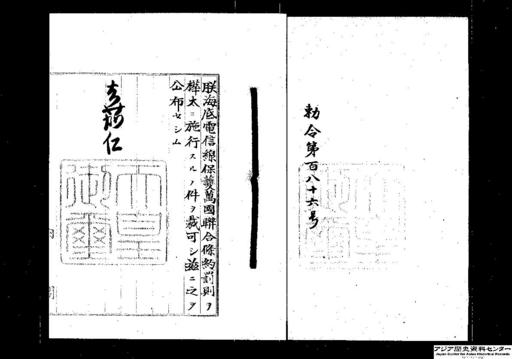 勅令第百八十六号
朕海底電信線保護萬國聯合條約罰則ヲ
樺太ニ施行スルノ件ヲ裁可シ茲ニ之ヲ
公布セシム
嘉仁
天皇
御璽
アジア歴史資料センター
Japan Center for Asian Historical Records